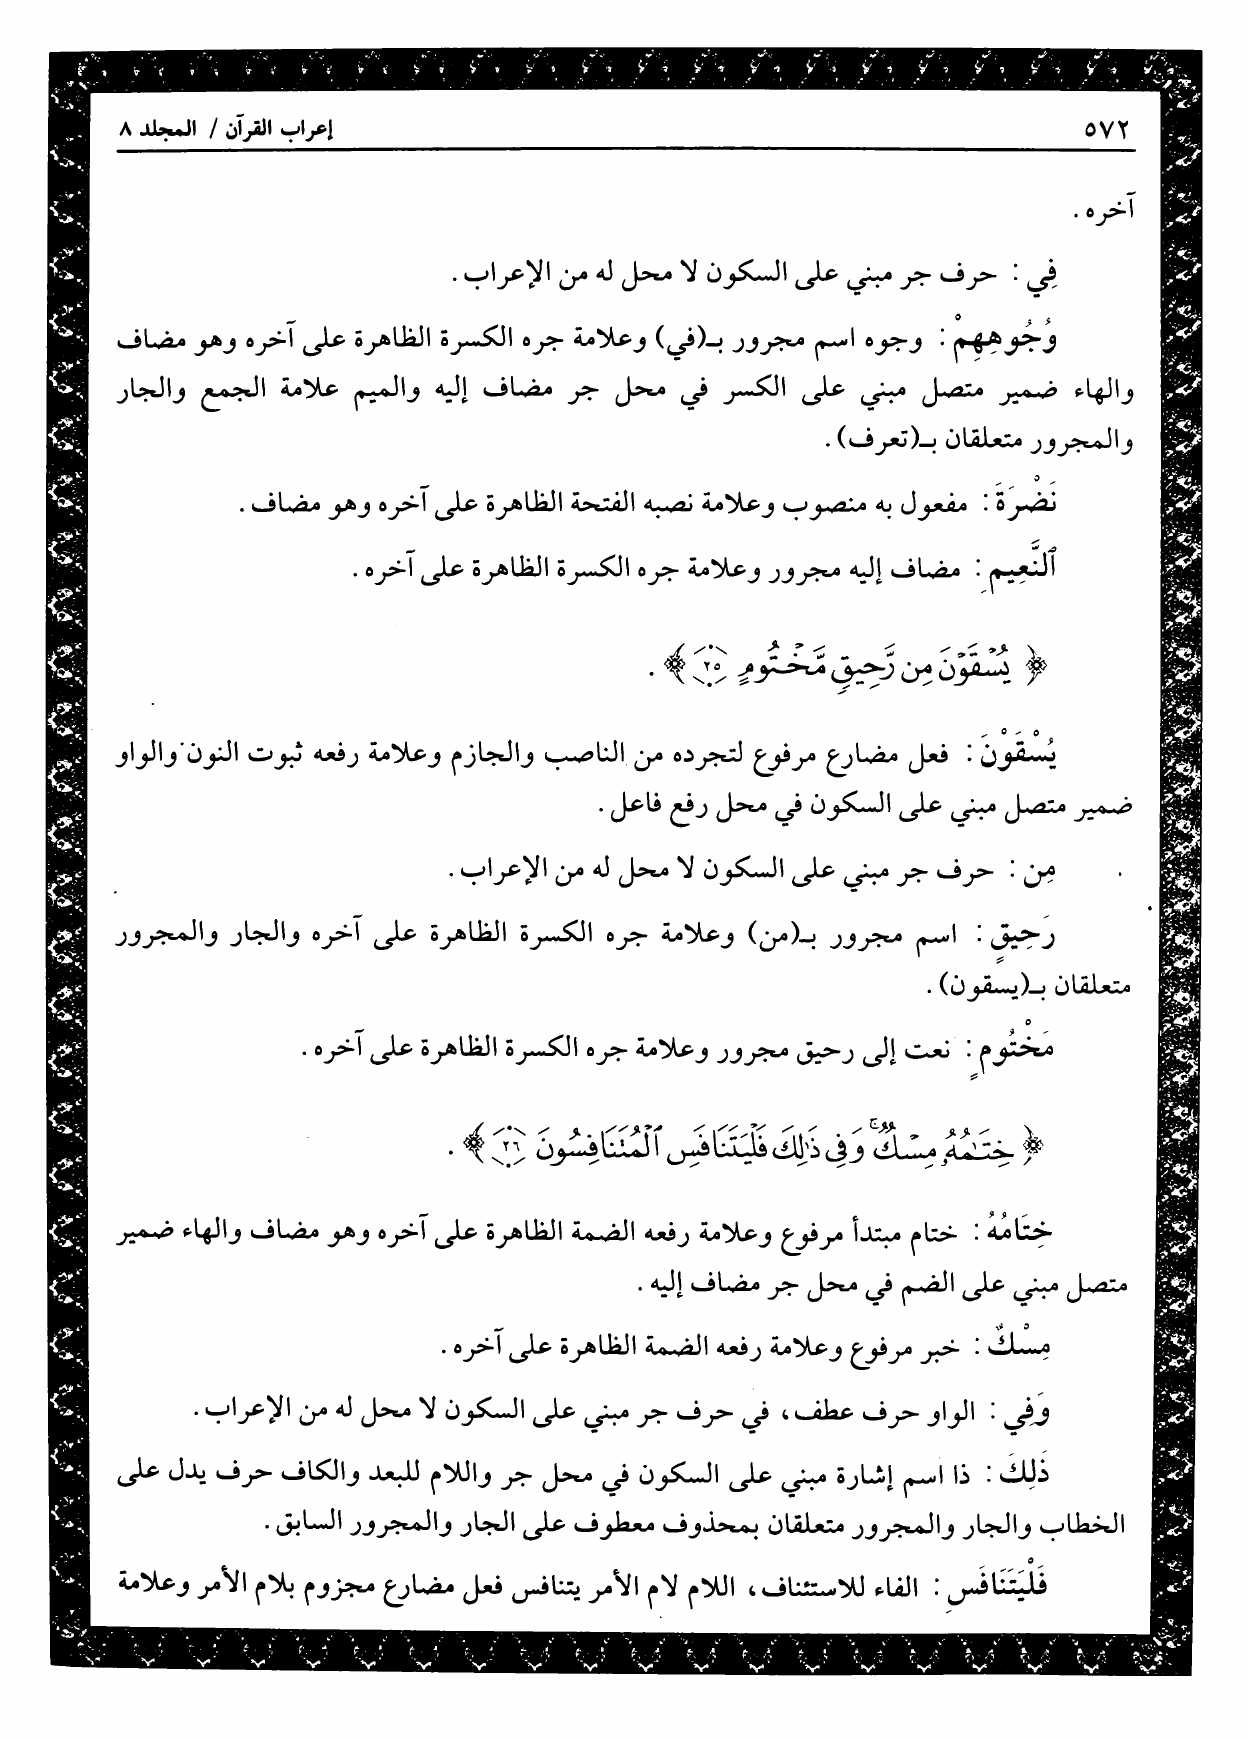 ٥٧٢
إعراب القرآن / المجلد ٨
آخره .
فِي : حرف جر مبني على السكون لا محل له من الإعراب .
وُجُوهِهِمْ : وجوه اسم مجرور بـ(في) وعلامة جره الكسرة الظاهرة على آخره وهو مضاف
والهاء ضمير متصل مبني على الكسر في محل جر مضاف إليه والميم علامة الجمع والجار
والمجرور متعلقان بـ(تعرف) .
نَضْرَةَ : مفعول به منصوب وعلامة نصبه الفتحة الظاهرة على آخره وهو مضاف .
ٱلنَّعِيمِ : مضاف إليه مجرور وعلامة جره الكسرة الظاهرة على آخره .
﴿ يُسْقَوْنَ مِن رَّحِيقٍ مَّخْتُومٍ ٢٥ ﴾ .
يُسْقَوْنَ : فعل مضارع مرفوع لتجرده من الناصب والجازم وعلامة رفعه ثبوت النون والواو
ضمير متصل مبني على السكون في محل رفع فاعل .
مِن : حرف جر مبني على السكون لا محل له من الإعراب .
رَحِيقٍ : اسم مجرور بـ(من) وعلامة جره الكسرة الظاهرة على آخره والجار والمجرور
متعلقان بـ(يسقون) .
مَخْتُومٍ : نعت إلى رحيق مجرور وعلامة جره الكسرة الظاهرة على آخره .
﴿ خِتَٰمُهُۥ مِسْكٌ ۚ وَفِى ذَٰلِكَ فَلْيَتَنَافَسِ ٱلْمُتَنَافِسُونَ ٢٦ ﴾ .
خِتَامُهُ : ختام مبتدأ مرفوع وعلامة رفعه الضمة الظاهرة على آخره وهو مضاف والهاء ضمير
متصل مبني على الضم في محل جر مضاف إليه .
مِسْكٌ : خبر مرفوع وعلامة رفعه الضمة الظاهرة على آخره .
وَفِي : الواو حرف عطف، في حرف جر مبني على السكون لا محل له من الإعراب .
ذَلِكَ : ذا اسم إشارة مبني على السكون في محل جر واللام للبعد والكاف حرف يدل على
الخطاب والجار والمجرور متعلقان بمحذوف معطوف على الجار والمجرور السابق .
فَلْيَتَنَافَسِ : الفاء للاستئناف، اللام لام الأمر يتنافس فعل مضارع مجزوم بلام الأمر وعلامة